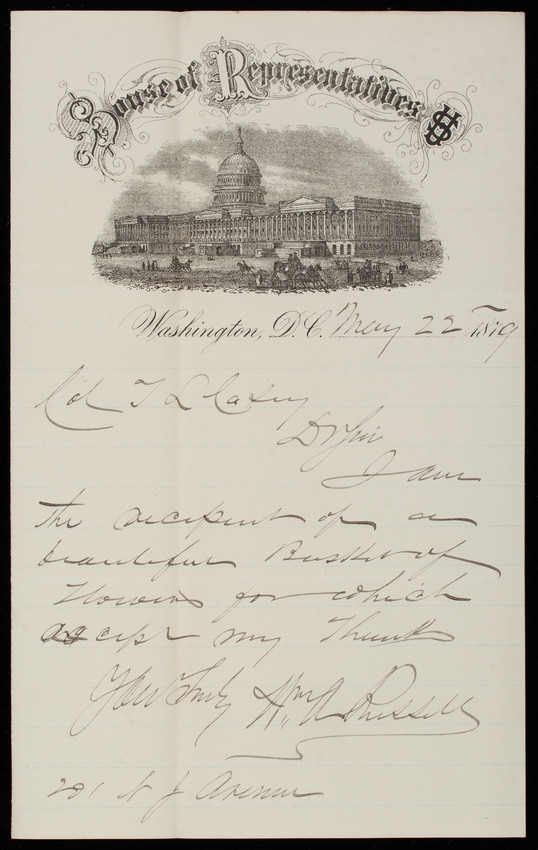 House of Representatives US
Washington, D.C. May 22 1879
Col T L Casey
Dr Sir
I am
the recipient of a
beautiful Basket of
Flowers for which
accept my Thanks
Yours Truly Wm A Russell
201 N J Avenue